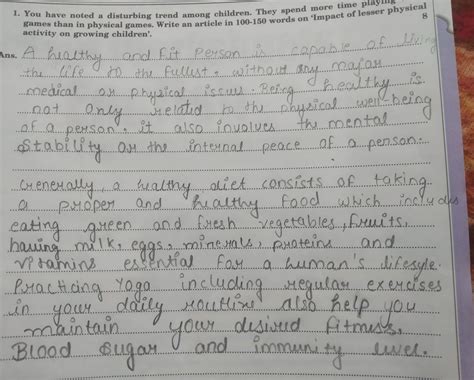 1. You have noted a disturbing trend among children. They spend more time playing
games than in physical games. Write an article in 100-150 words on 'Impact of lesser physical
activity on growing children'. 8
Ans. A healthy and Fit Person is capable of living
the life to the fullest, without any major
medical or physical issues. Being healthy is
not only related to the physical well-being
of a person. it also involves the mental
Stability or the internal peace of a person.
Generally, a healthy diet consists of taking
a proper and healthy Food which includes
eating green and fresh vegetables, Fruits,
having milk, eggs, minerals, proteins and
vitamins essential for a human's lifestyle.
Practicing Yoga including regular exercises
in your daily routine also help you
maintain your desired Fitness,
Blood Sugar and immunity level.